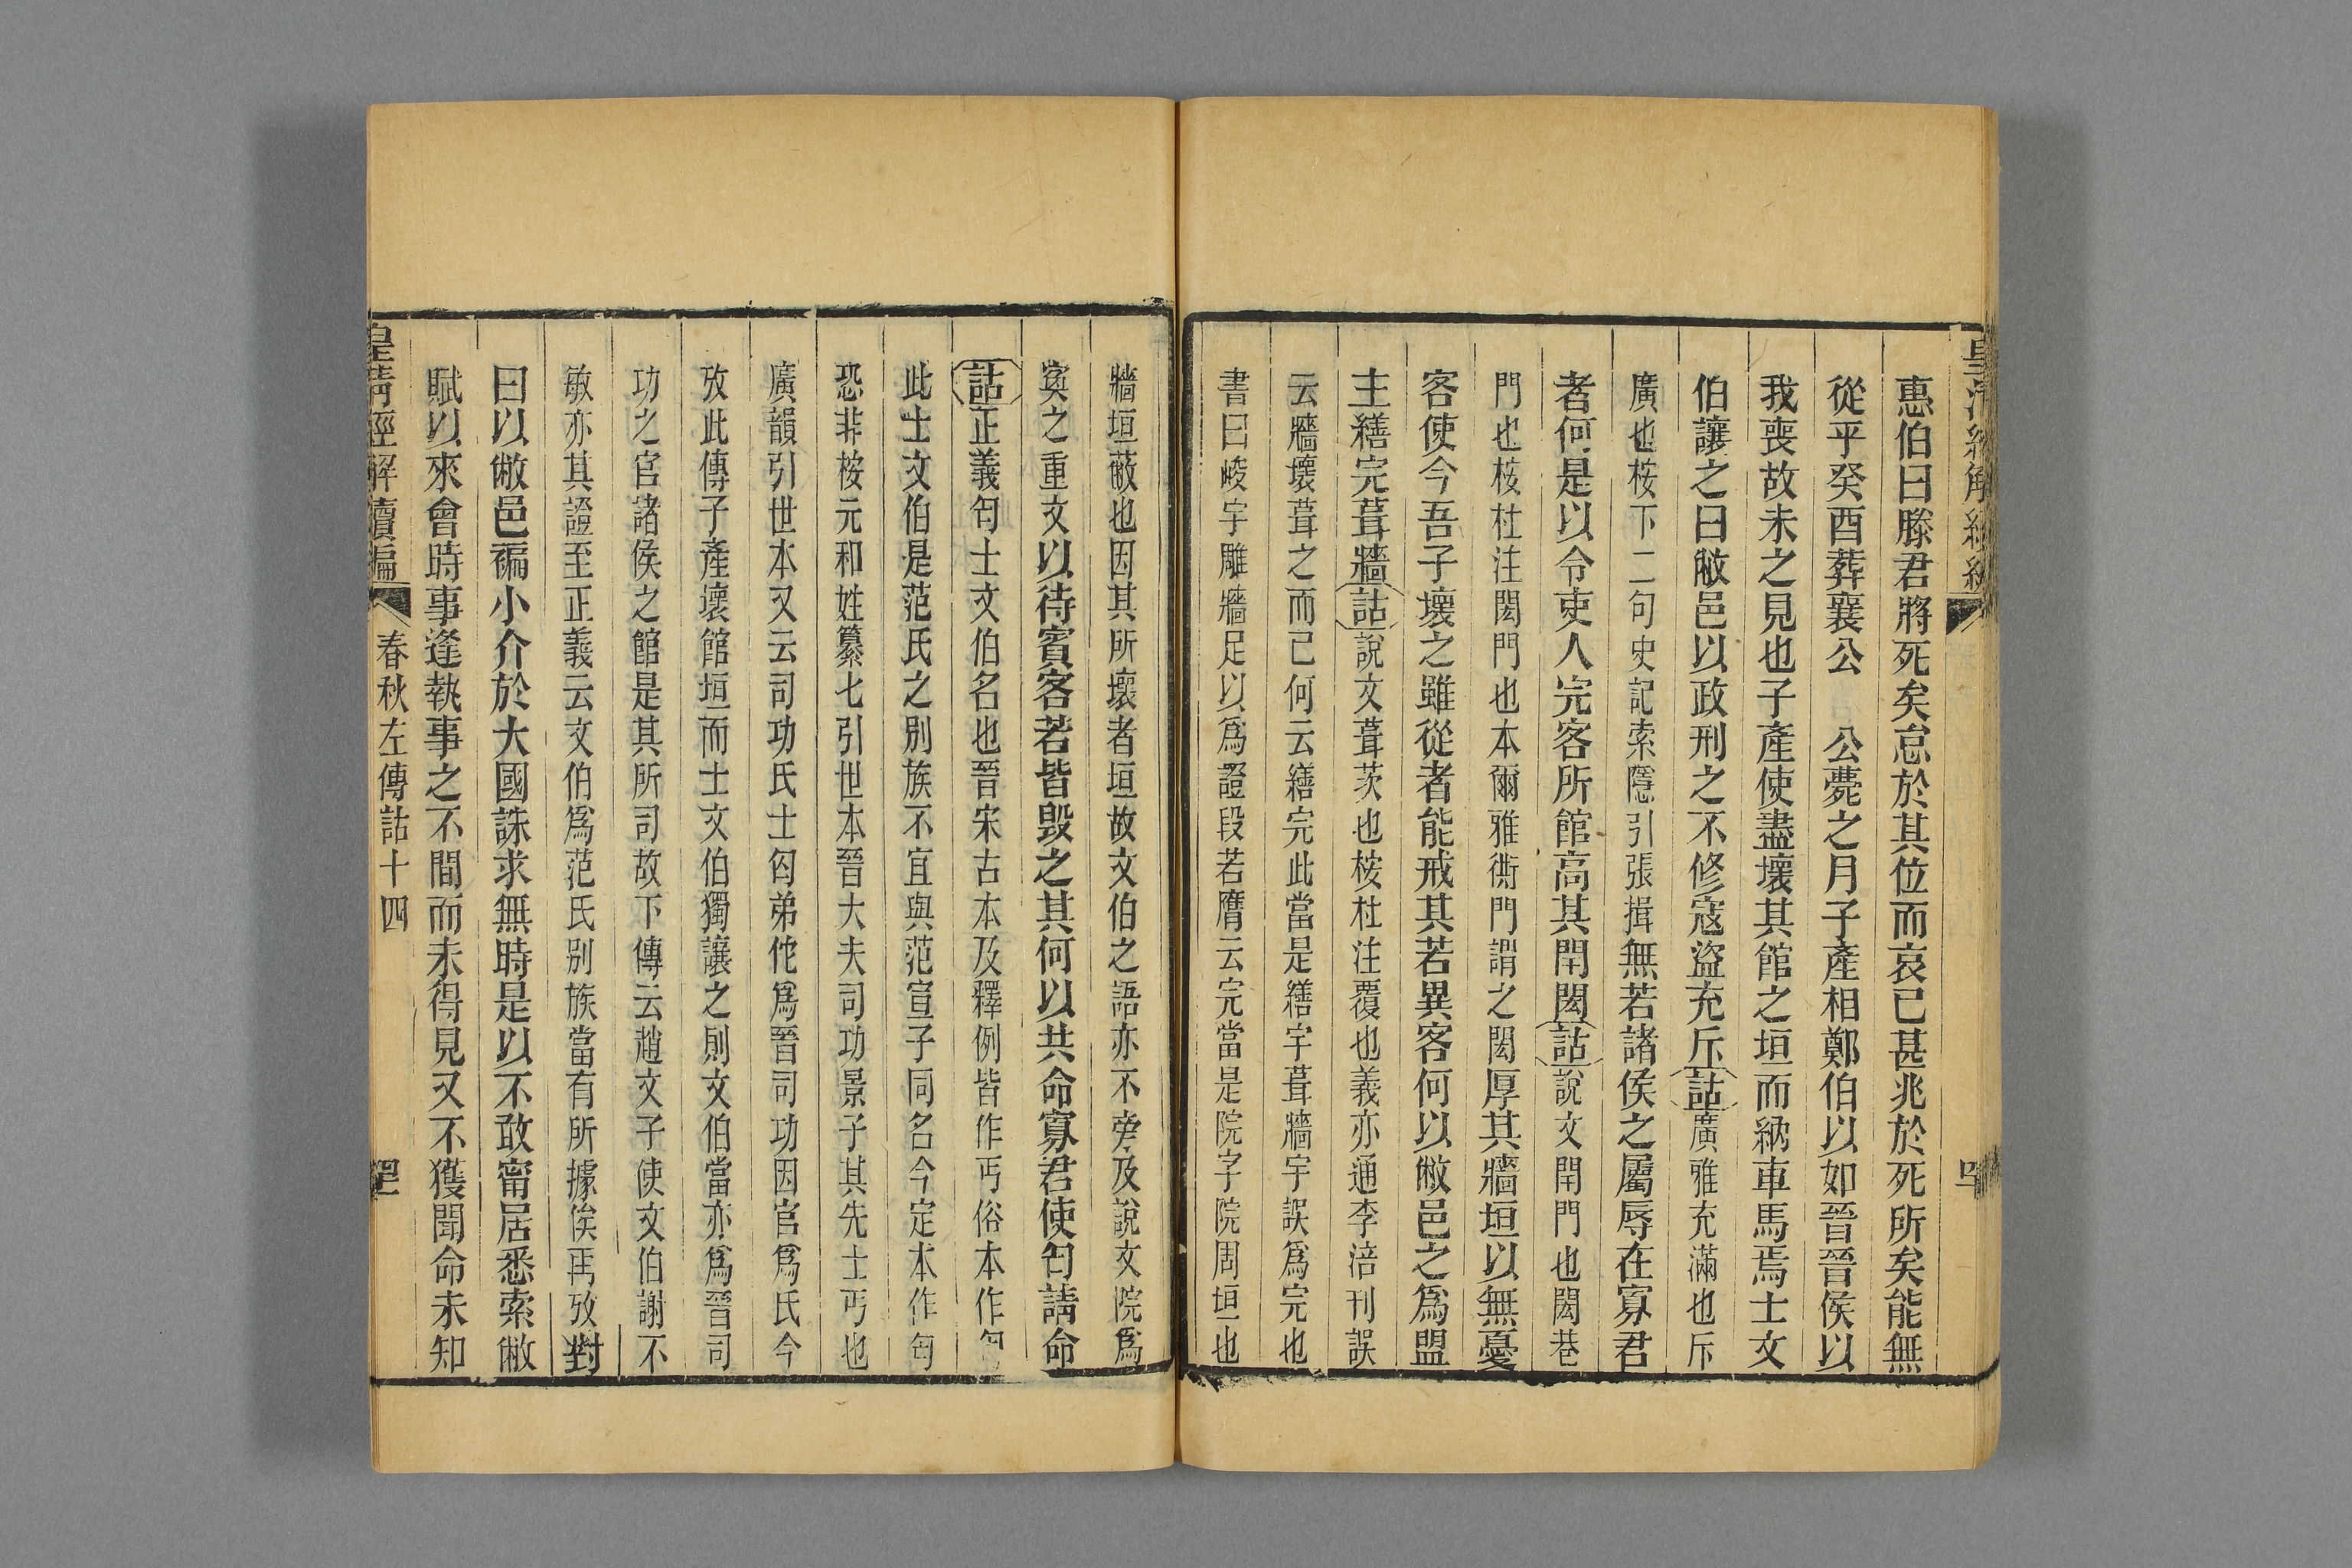 惠伯曰滕君將死矣怠於其位而哀已甚兆於死所矣能無
從乎癸酉葬襄公　公薨之月子產相鄭伯以如晉晉侯以
我喪故未之見也子產使盡壞其館之垣而納車馬焉士文
伯讓之曰敝邑以政刑之不修寇盜充斥詁廣雅充滿也斥
廣也桉下二句史記索隱引張揖無若諸侯之屬辱在寡君
者何是以令吏人完客所館高其閈閎詁說文閈門也閎巷
門也桉杜注閎門也本爾雅衖門謂之閎厚其牆垣以無憂
客使今吾子壞之雖從者能戒其若異客何以敝邑之爲盟
主繕完葺牆詁說文葺茨也桉杜注覆也義亦通李涪刊誤
云牆壞葺之而已何云繕完此當是繕宇葺牆宇誤爲完也
書曰峻宇雕牆足以爲證段若膺云完當是院字院周垣也
牆垣蔽也因其所壞者垣故文伯之語亦不旁及說文院爲
寏之重文以待賓客若皆毀之其何以共命寡君使匄請命
詁正義匄士文伯名也晉宋古本及釋例皆作丐俗本作匄
此士文伯是范氏之別族不宜與范宣子同名今定本作匄
恐非桉元和姓纂七引世本晉大夫司功景子其先士丐也
廣韻引世本又云司功氏士匄弟佗爲晉司功因官爲氏今
攷此傳子產壞館垣而士文伯獨讓之則文伯當亦爲晉司
功之官諸侯之館是其所司故下傳云趙文子使文伯謝不
敏亦其證至正義云文伯爲范氏別族當有所據俟再攷對
曰以敝邑褊小介於大國誅求無時是以不敢甯居悉索敝
賦以來會時事逢執事之不間而未得見又不獲聞命未知
皇清經解續編　春秋左傳詁十四